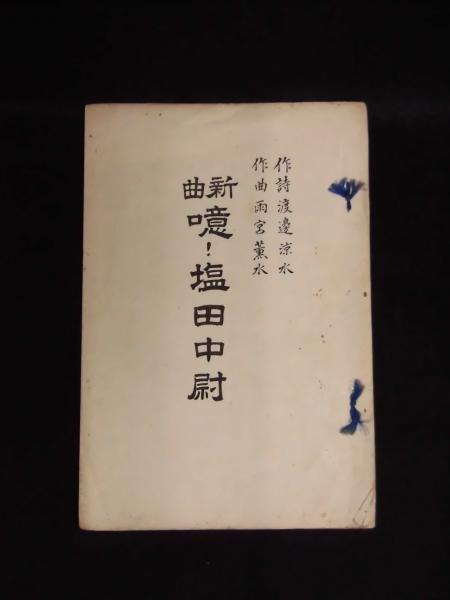 作詩渡邊涼水
作曲雨宮薫水
新曲
噫!塩田中尉